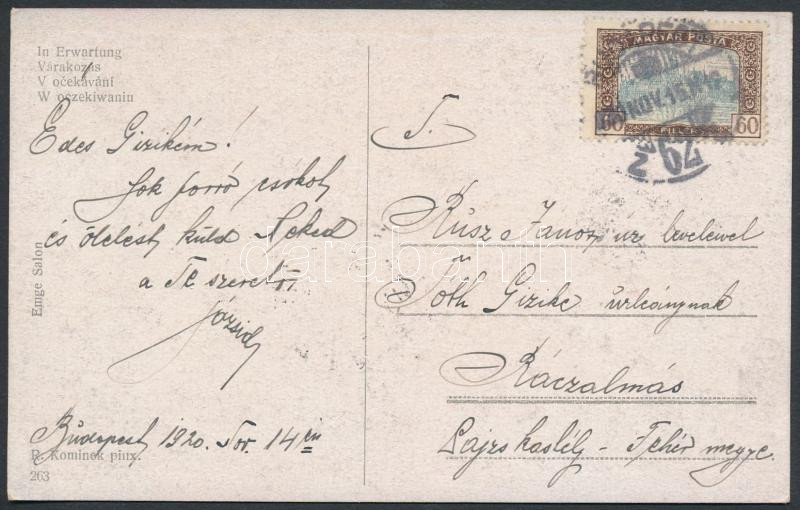 In Erwartung
Várakozás
V očekávání
W oczekiwaniu
Édes Gizikém!
Sok forró csókot
és ölelést küld Neked
a Te szerető
Józsid
Budapest, 1920. Nov. 14 én
R. Kominek pinx.
263
Emge Salon
MAGYAR POSTA
60 FILLÉR 60
NOV. 15
79
T.
Rusz János úr levelével
Tóth Gizike úrleánynak
Ráczalmás
Fehér megye.
darabanth